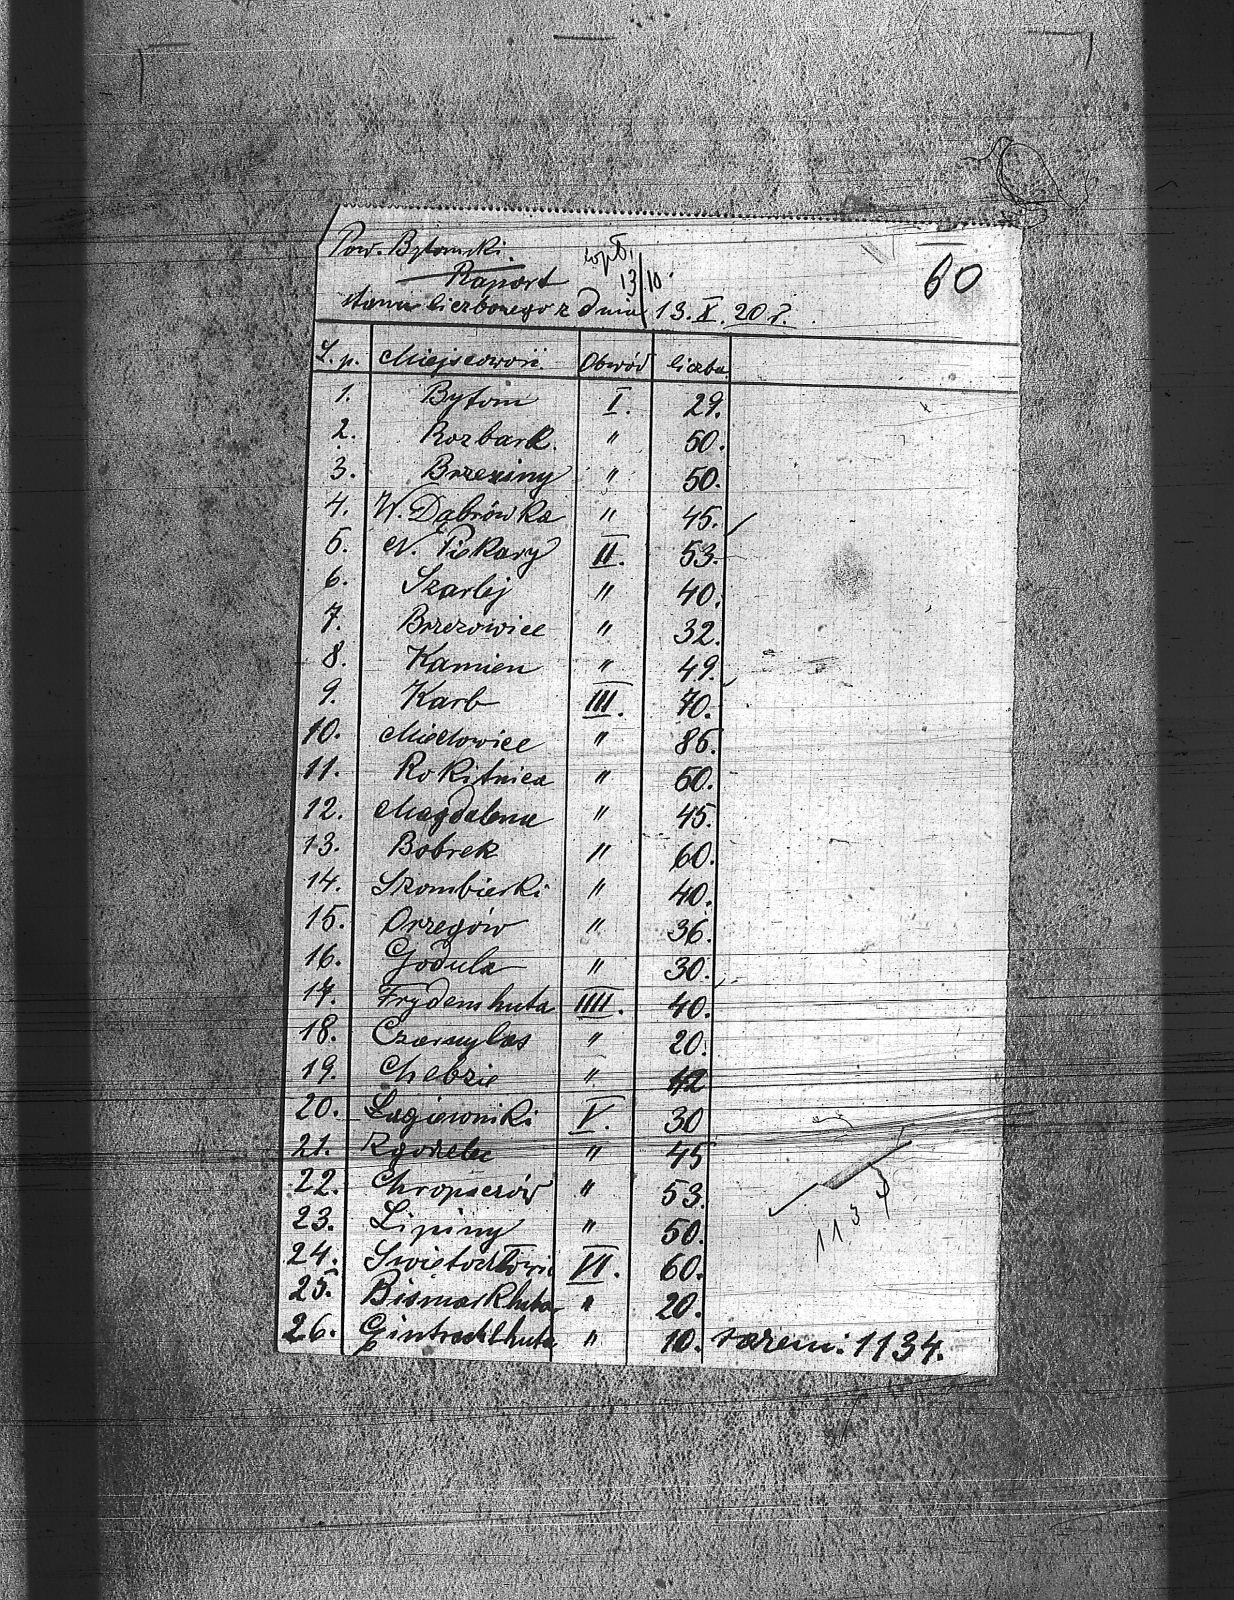 Pow. Bytomski.
wpł. 13/10.
60
Raport
stanu liczbonego z dnia 13. X. 20 r.
L. p. Miejscowość Obwód liczba
1. Bytom I. 29.
2. Rozbark. " 50.
3. Brzeziny " 50.
4. W. Dąbrówka " 45.
5. N. Piekary II. 53.
6. Szarlej " 40.
7. Brzezowice " 32.
8. Kamien " 49.
9. Karb III. 70.
10. Miechowice " 85.
11. Rokitnica " 50.
12. Magdalena " 45.
13. Bobrek " 60.
14. Szombierki " 40.
15. Orzegów " 36.
16. Godula " 30.
17. Frydenshuta IIII. 40.
18. Czarnylas " 20.
19. Chebzie " 42
20. Łagiewniki V. 30
21. Zgorzelec " 45
22. Chropaczów " 53.
23. Lipiny " 50.
24. Swietochłowic VI. 60.
25. Bismarkhuta " 20.
26. Eintrachthuta " 10. razem: 1134.